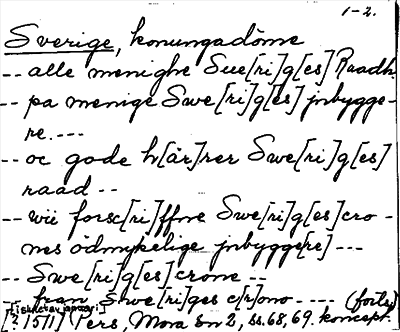 1-2.
Sverige, konungadöme
-- alle menighe Sue[ri]g[es] Raadh.
-- pa menige Swe[ri]g[es] jnbygge-
re. ---
-- oc gode h[är]rer Swe[ri]g[es]
raad --
-- wii forsc[ri]ffne Swe[ri]g[es] cro-
nes ödmykelige jnbygge[re] ---
-- Swe[ri]g[es] crone --
fran Swe[ri]ges c[r]ono ---- (forts)
[? 1511] Pers, Mora Sn 2, ss. 68, 69. koncept.